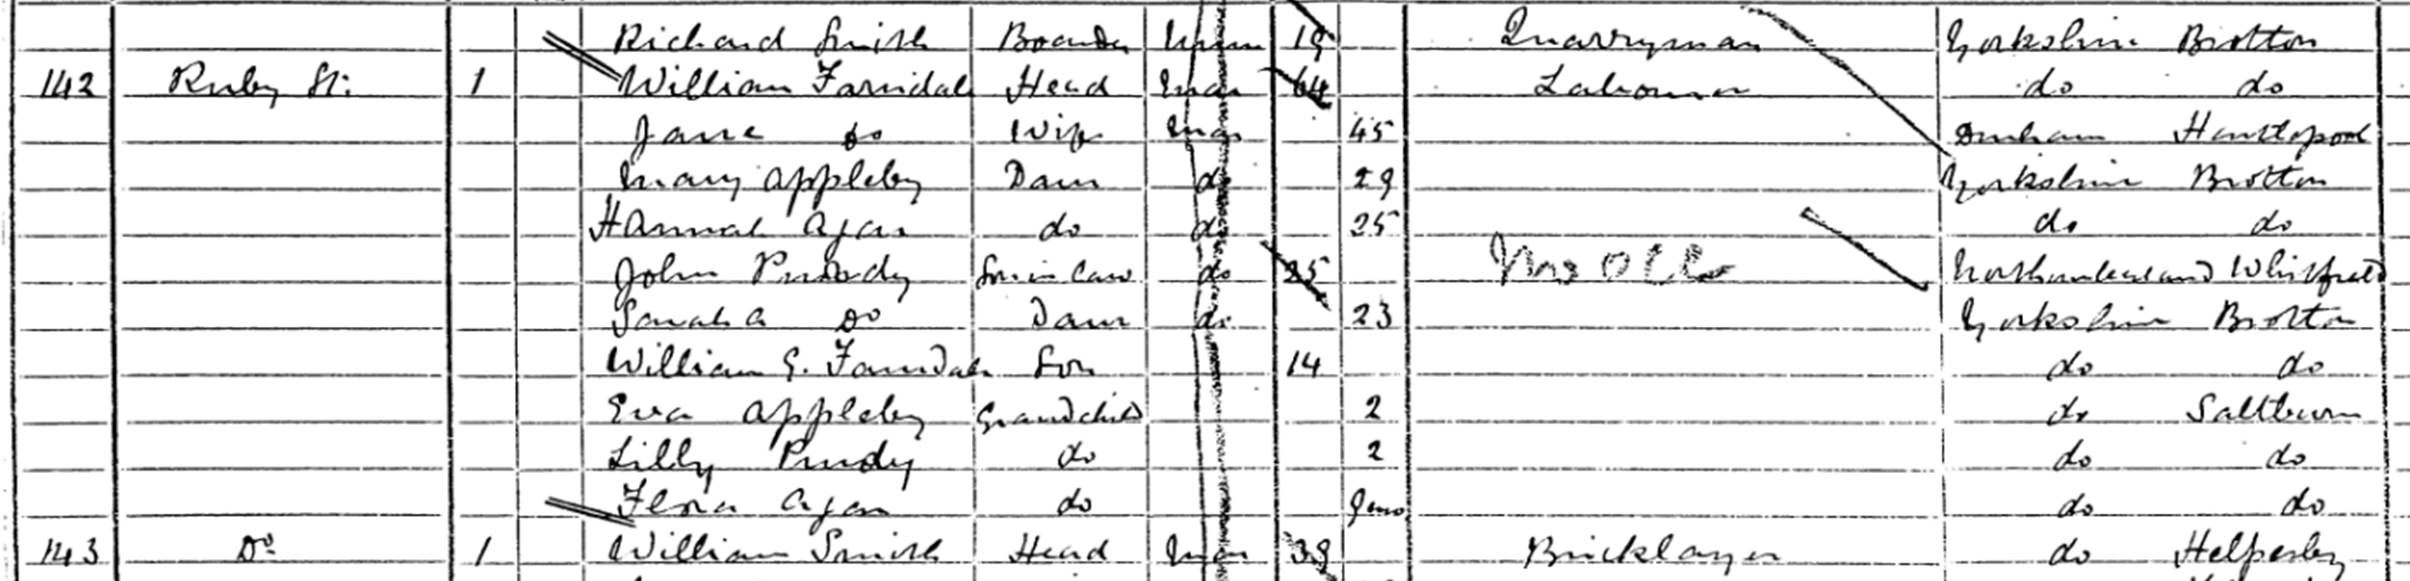 Richard Smith Boarder Unm 19 Quarryman Yorkshire Brotton
142 Ruby St: 1 William Farndale Head Mar 64 Labourer do do
Jane do Wife Mar 45 Durham Hartlepool
Mary Appleby Daur do 29 Yorkshire Brotton
Hannah do do 25 do do
John Purdy Son in Law do 25 Northumberland Whitfield
Sarah A Do Daur do 23 Yorkshire Brotton
William G. Farndale Son 14 do do
Eva Appleby Grandchild 2 do Saltburn
Lilly Purdy do 2 do do
Flora do 9mo do do
143 Do 1 William Smith Head Mar 39 Bricklayer do Helperby